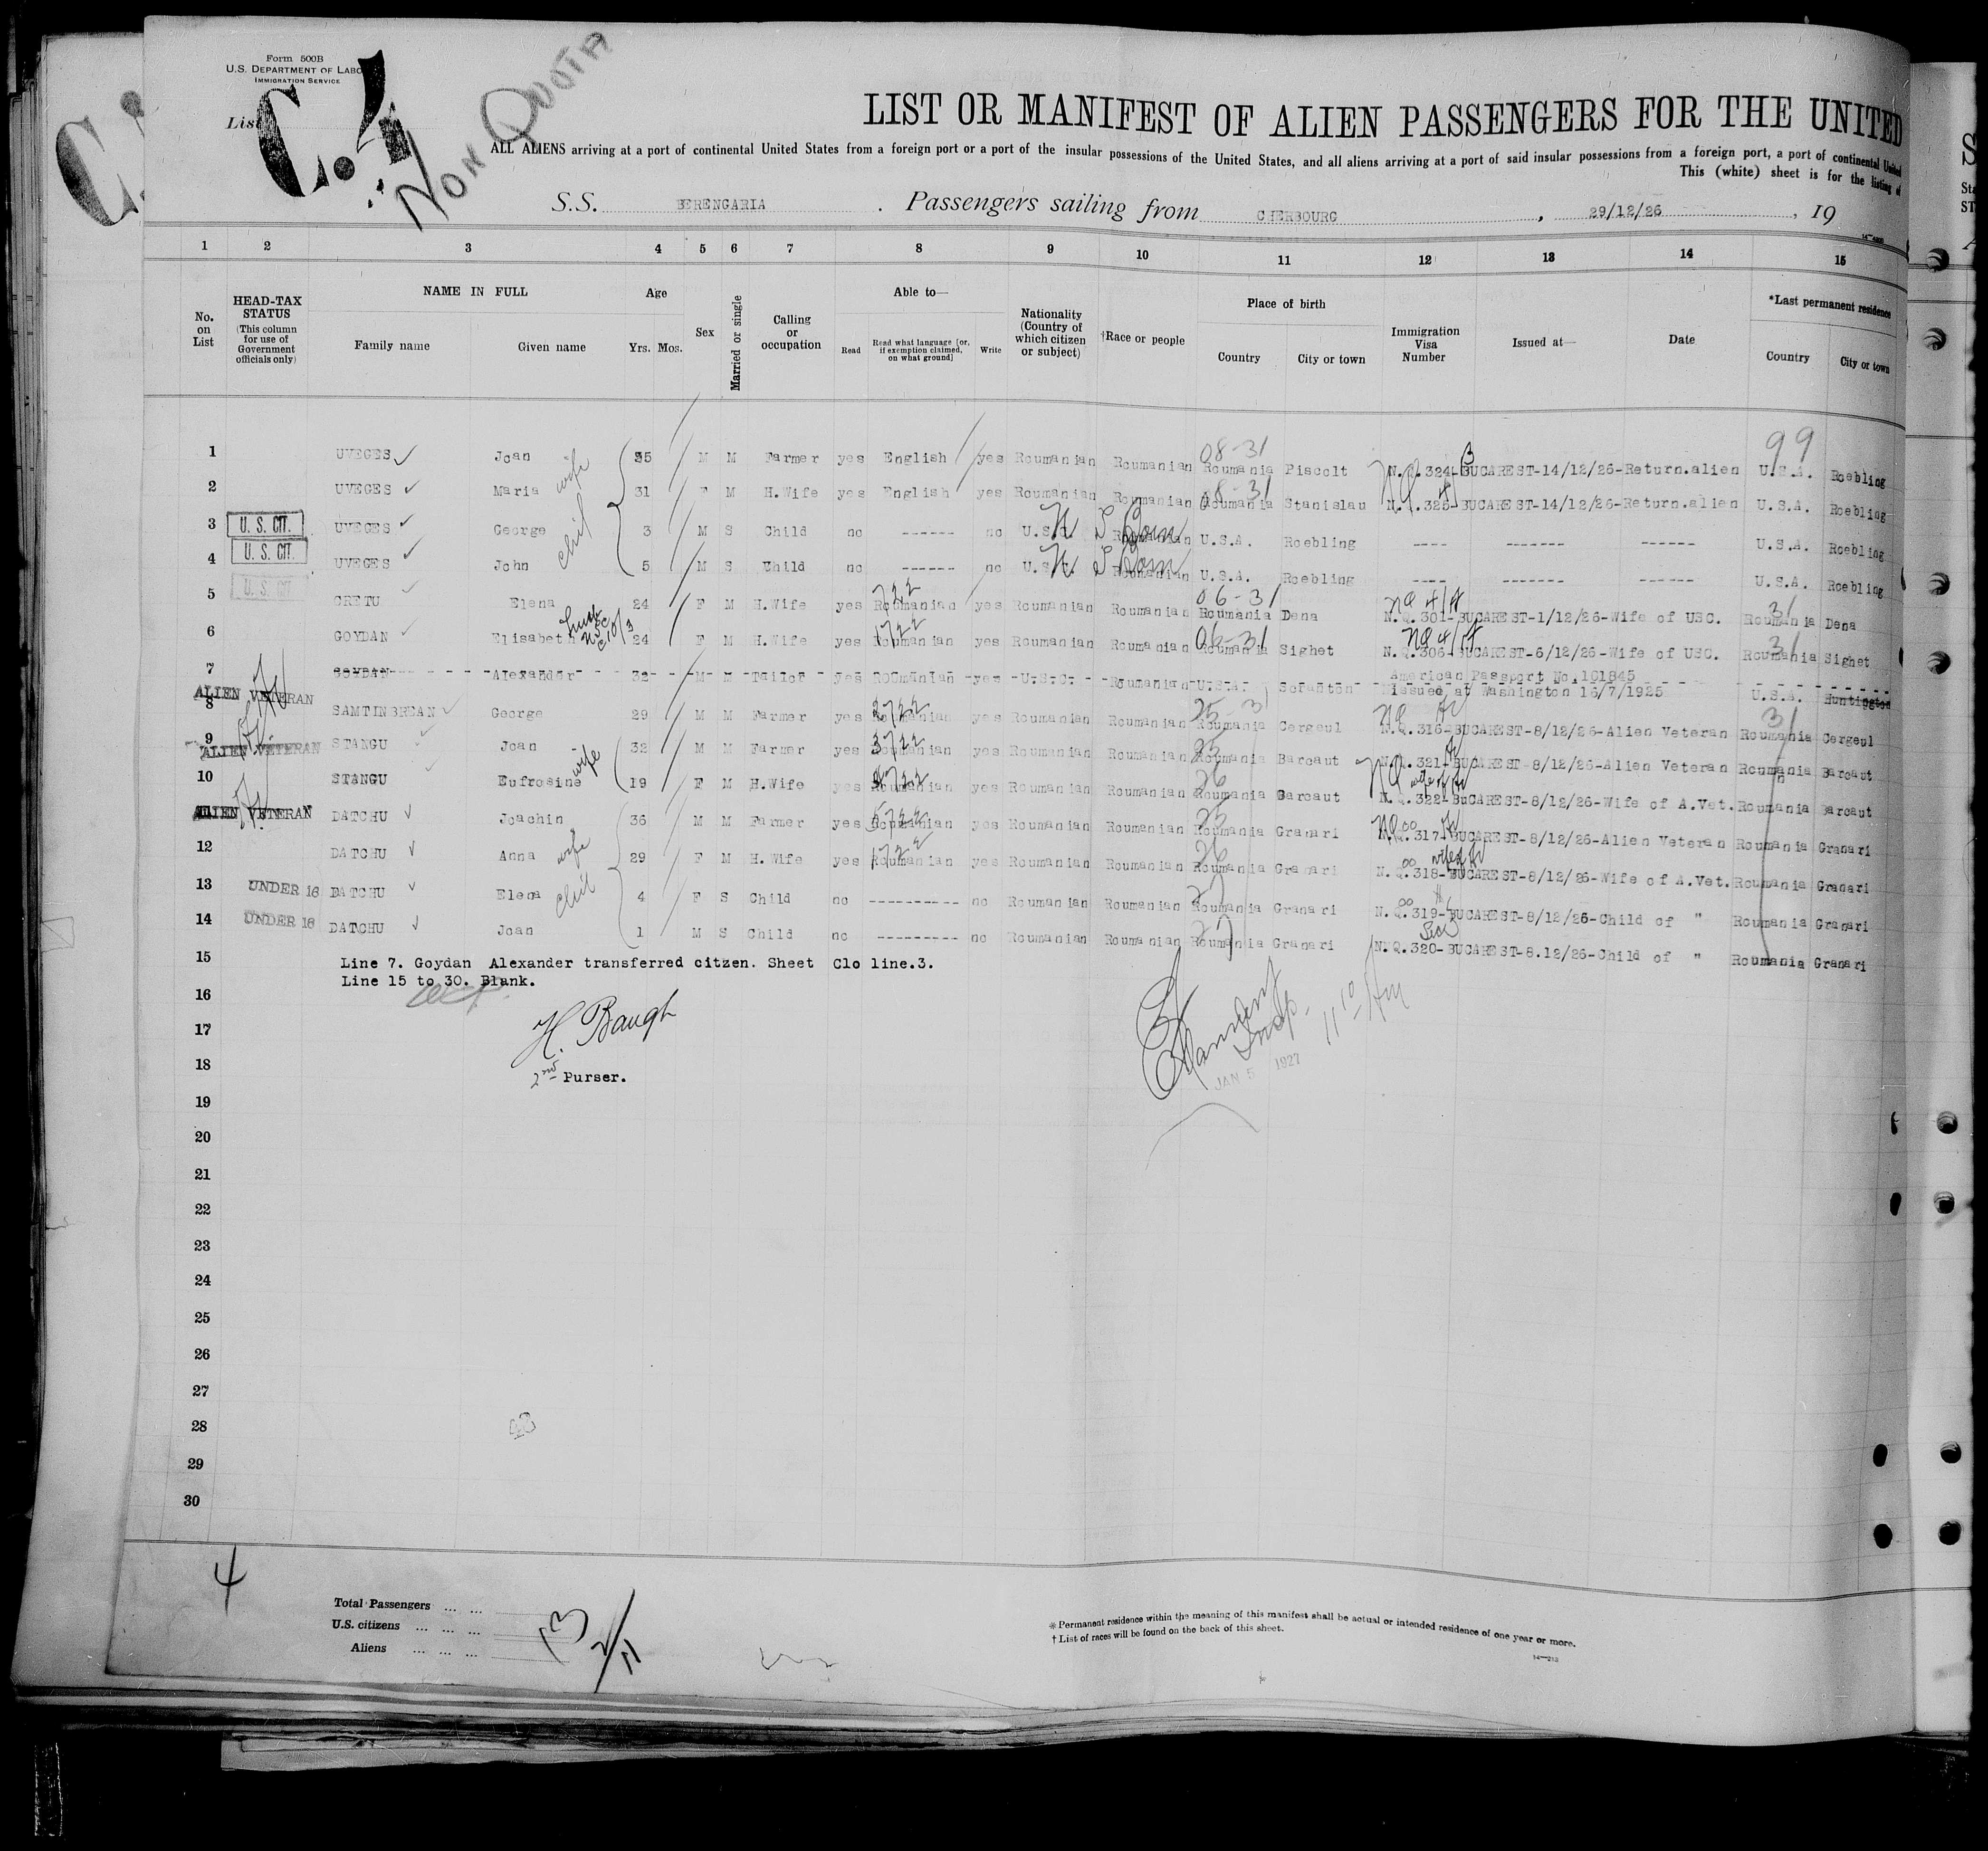 Form 500B
U.S. DEPARTMENT OF LABO
IMMIGRATION SERVICE
List
C.4
NON QUOTA
LIST OR MANIFEST OF ALIEN PASSENGERS FOR THE UNITED
ALL ALIENS arriving at a port of continental United States from a foreign port or a port of the insular possessions of the United States, and all aliens arriving at a port of said insular possessions from a foreign port, a port of continental United
This (white) sheet is for the listing of
S.S. BERENGARIA . Passengers sailing from CHERBOURG , 29/12/26 , 19
1 2 3 4 5 6 7 8 9 10 11 12 13 14 15
No. on List
HEAD-TAX STATUS (This column for use of Government officials only)
NAME IN FULL
Family name Given name
Age
Yrs. Mos.
Sex
Married or single
Calling or occupation
Able to—
Read Read what language [or, if exemption claimed, on what ground] Write
Nationality (Country of which citizen or subject)
†Race or people
Place of birth
Country City or town
Immigration Visa Number
Issued at—
Date
*Last permanent residence
Country City or town
99
08-31
1 UVEGES Joan wife 35 M M Farmer yes English yes Roumanian Roumanian Roumania Piscolt N.Q.324-BUCAREST-14/12/26-Return.alien U.S.A. Roebling
08-31
2 UVEGES Maria 31 F M H.Wife yes English yes Roumanian Roumanian Roumania Stanislau N.Q.325-BUCAREST-14/12/26-Return.alien U.S.A. Roebling
3 U.S. CIT. UVEGES George chil 3 M S Child no ------ no U.S. Born Roumanian U.S.A. Roebling ---- ------- ------ U.S.A. Roebling
4 U.S. CIT. UVEGES John 5 M S Child no ------ no U.S. Born Roumanian U.S.A. Roebling ---- ------- ------ U.S.A. Roebling
U.S. CIT.
06-31
5 CRETU Elena 24 F M H.Wife yes Roumanian yes Roumanian Roumanian Roumania Dena N.Q.301-BUCAREST-1/12/26-Wife of USC. Roumania Dena
6 GOYDAN Elisabeth 24 F M H.Wife yes Roumanian yes Roumanian Roumanian Roumania Sighet N.Q.306-BUCAREST-6/12/26-Wife of USC. Roumania Sighet
American Passport No.101845
7 GOYDAN Alexander 32 M M Tailor yes Roumanian yes U.S.C. Roumanian U.S.A. issued at Washington 16/7/1925 U.S.A. Huntington
ALIEN VETERAN
8 SAMTINBREAN George 29 M M Farmer yes Roumanian yes Roumanian Roumanian Roumania Cergeul N.Q.316-BUCAREST-8/12/26-Alien Veteran Roumania Cergeul
9 ALIEN VETERAN STANGU Joan wife 32 M M Farmer yes Roumanian yes Roumanian Roumanian Roumania Barcaut N.Q.321-BUCAREST-8/12/26-Alien Veteran Roumania Barcaut
10 STANGU Eufrosine 19 F M H.Wife yes Roumanian yes Roumanian Roumanian Roumania Barcaut N.Q.322-BUCAREST-8/12/26-Wife of A.Vet. Roumania Barcaut
ALIEN VETERAN DATCHU Joachin 36 M M Farmer yes Roumanian yes Roumanian Roumanian Roumania Granari N.Q.317-BUCAREST-8/12/26-Alien Veteran Roumania Granari
12 DATCHU Anna wife 29 F M H.Wife yes Roumanian yes Roumanian Roumanian Roumania Granari N.Q.318-BUCAREST-8/12/26-Wife of A.Vet. Roumania Granari
13 UNDER 16 DATCHU Elena chil 4 F S Child no ---------- no Roumanian Roumanian Roumania Granari N.Q.319-BUCAREST-8/12/26-Child of " Roumania Granari
14 UNDER 16 DATCHU Joan 1 M S Child no --------- no Roumanian Roumanian Roumania Granari N.Q.320-BUCAREST-8.12/26-Child of " Roumania Granari
15 Line 7. Goydan Alexander transferred citzen. Sheet Clo line.3.
Line 15 to 30. Blank.
16
17 H. Baugh
18 2nd Purser.
Insp. 11 10 AM
JAN 5 1927
19
20
21
22
23
24
25
26
27
28
29
30
4
Total Passengers ... ... 13
U.S. citizens ... ... ... 2
Aliens ... ... ... 11
* Permanent residence within the meaning of this manifest shall be actual or intended residence of one year or more.
† List of races will be found on the back of this sheet.
14—213